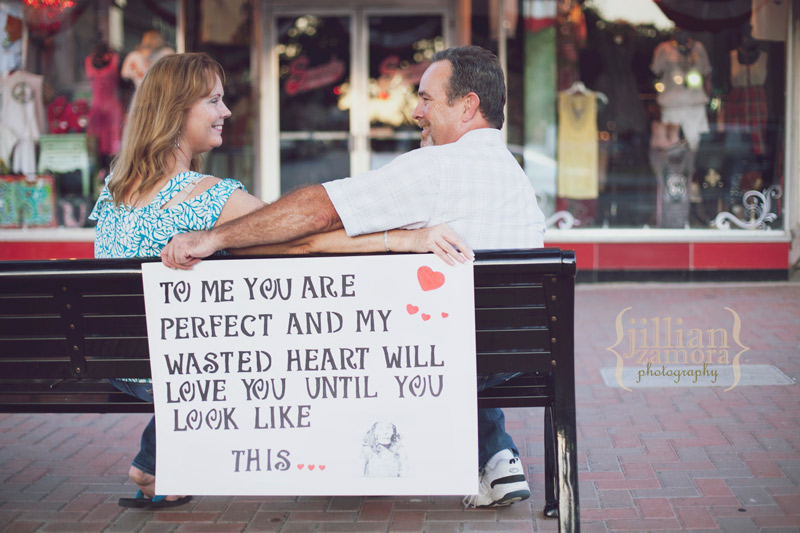 TO ME YOU ARE
PERFECT AND MY
WASTED HEART WILL
LOVE YOU UNTIL YOU
LOOK LIKE
THIS...
jillian
zamora
photography